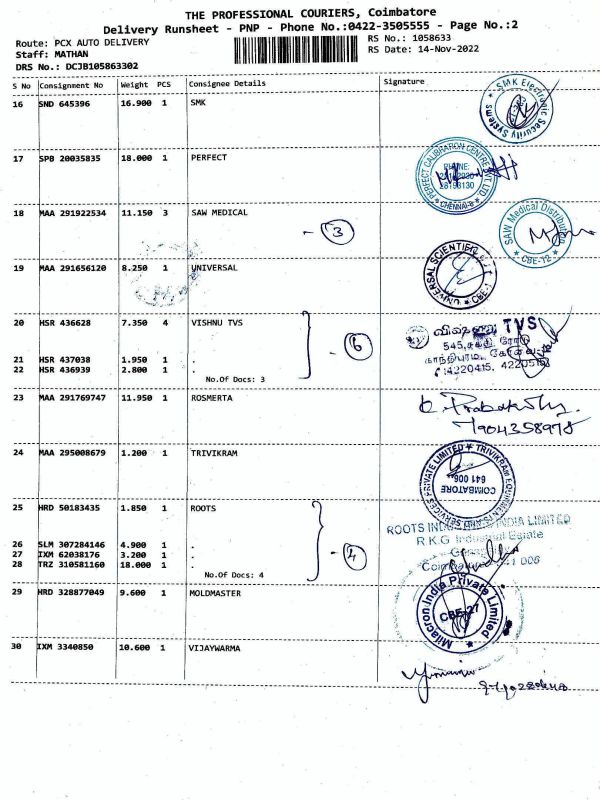 THE PROFESSIONAL COURIERS, Coimbatore
Delivery Runsheet - PNP - Phone No.:0422-3505555 - Page No.:2
Route: PCX AUTO DELIVERY
RS No.: 1058633
Staff: MATHAN
RS Date: 14-Nov-2022
DRS No.: DCJB105863302
S No Consignment No Weight PCS Consignee Details Signature
16 SND 645396 16.900 1 SMK
SMK Electronic Security Systems
17 SPB 20035835 18.000 1 PERFECT
PERFECT CALIBRATION CENTRE PVT. LTD.
PHONE:
CHENNAI-8
18 MAA 291922534 11.150 3 SAW MEDICAL
- 3
SAW Medical Distributors
CBE-12
19 MAA 291656120 8.250 1 UNIVERSAL
UNIVERSAL SCIENTIFIC
CBE-
20 HSR 436628 7.350 4 VISHNU TVS
TVS
- 6
545,
21 HSR 437038 1.950 1 .
22 HSR 436939 2.800 1 .
:4220415,
No.Of Docs: 3
23 MAA 291769747 11.950 1 ROSMERTA
7904358978
24 MAA 295008679 1.200 1 TRIVIKRAM
TRIVIKRAM SERVICES PRIVATE LIMITED
COIMBATORE
641 006
25 HRD 50183435 1.850 1 ROOTS
ROOTS INDIA LIMITED
R.K.G Industrial Estate
26 SLM 307284146 4.900 1 .
27 IXM 62038176 3.200 1 .
28 TRZ 310581160 18.000 1 .
- 4
641 006
No.Of Docs: 4
29 HRD 328877049 9.600 1 MOLDMASTER
Milacron India Private Limited
CBE-27
30 IXM 3340850 10.600 1 VIJAYWARMA